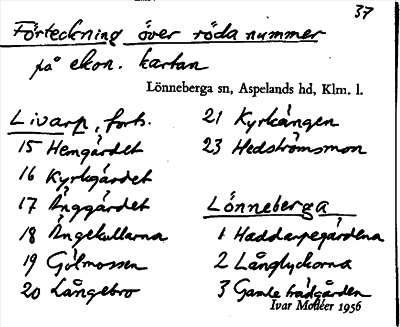 37
Förteckning över röda nummer
på ekon. kartan
Lönneberga sn, Aspelands hd, Klm. l.
Livarp, forts.
15 Hemgärdet
16 Kyrkgärdet
17 Änggärdet
18 Ängekullarna
19 Gölmossen
20 Långebro
21 Kyrkängen
23 Hedströmsmon
Lönneberga
1 Haddarpegärdena
2 Långlyckorna
3 Gamle trädgården
Ivar Modéer 1956